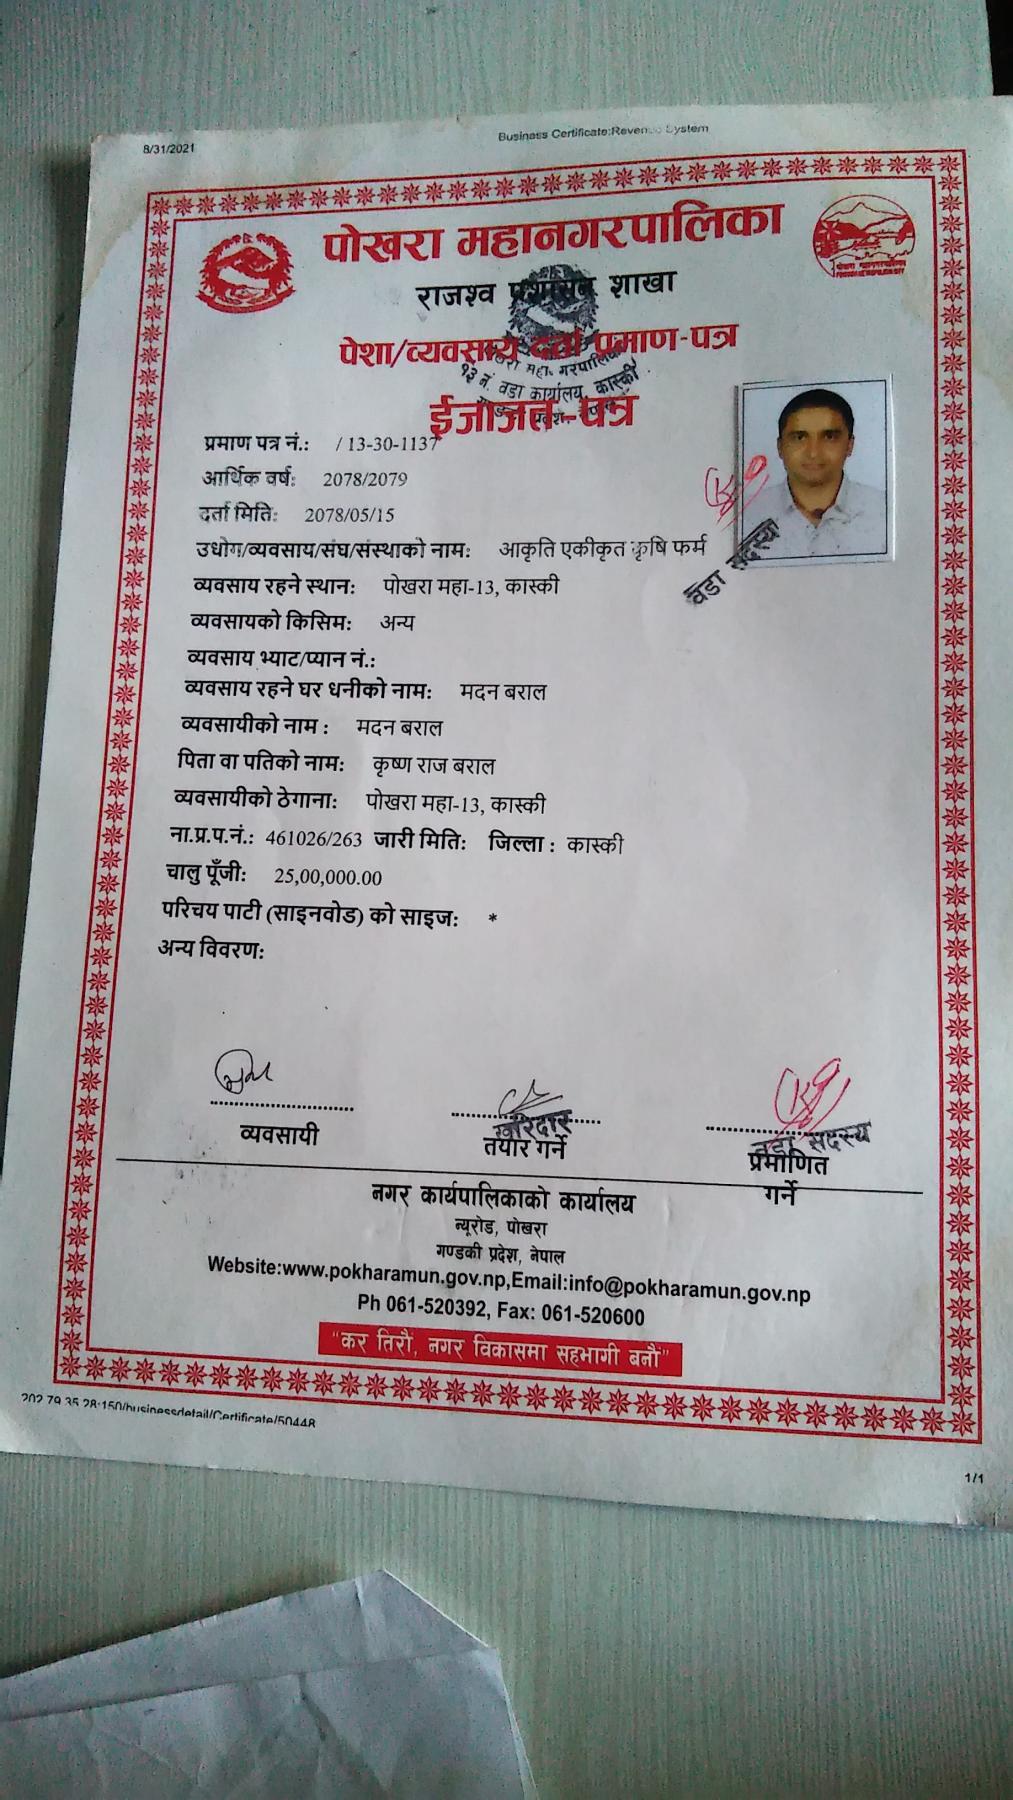 8/31/2021
Business Certificate:Revenue System
पोखरा महानगरपालिका
राजश्व प्रशासन शाखा
पेशा/व्यवसाय दर्ता प्रमाण-पत्र
१३ नं. वडा कार्यालय, कास्की
ईजाजत-पत्र
प्रमाण पत्र नं.: / 13-30-1137
आर्थिक वर्ष: 2078/2079
दर्ता मिति: 2078/05/15
उधोग/व्यवसाय/संघ/संस्थाको नाम: आकृति एकीकृत कृषि फर्म
वडा सदस्य
व्यवसाय रहने स्थान: पोखरा महा-13, कास्की
व्यवसायको किसिम: अन्य
व्यवसाय भ्याट/प्यान नं.:
व्यवसाय रहने घर धनीको नाम: मदन बराल
व्यवसायीको नाम : मदन बराल
पिता वा पतिको नाम: कृष्ण राज बराल
व्यवसायीको ठेगाना: पोखरा महा-13, कास्की
ना.प्र.प.नं.: 461026/263 जारी मिति: जिल्ला : कास्की
चालु पूँजी: 25,00,000.00
परिचय पाटी (साइनवोड) को साइज: *
अन्य विवरण:
व्यवसायी
खरिदार
तयार गर्ने
वडा सदस्य
प्रमाणित
गर्ने
नगर कार्यपालिकाको कार्यालय
न्यूरोड, पोखरा
गण्डकी प्रदेश, नेपाल
Website:www.pokharamun.gov.np,Email:info@pokharamun.gov.np
Ph 061-520392, Fax: 061-520600
"कर तिरौं, नगर विकासमा सहभागी बनौं"
202.79.35.28:150/businessdetail/Certificate/50448
1/1